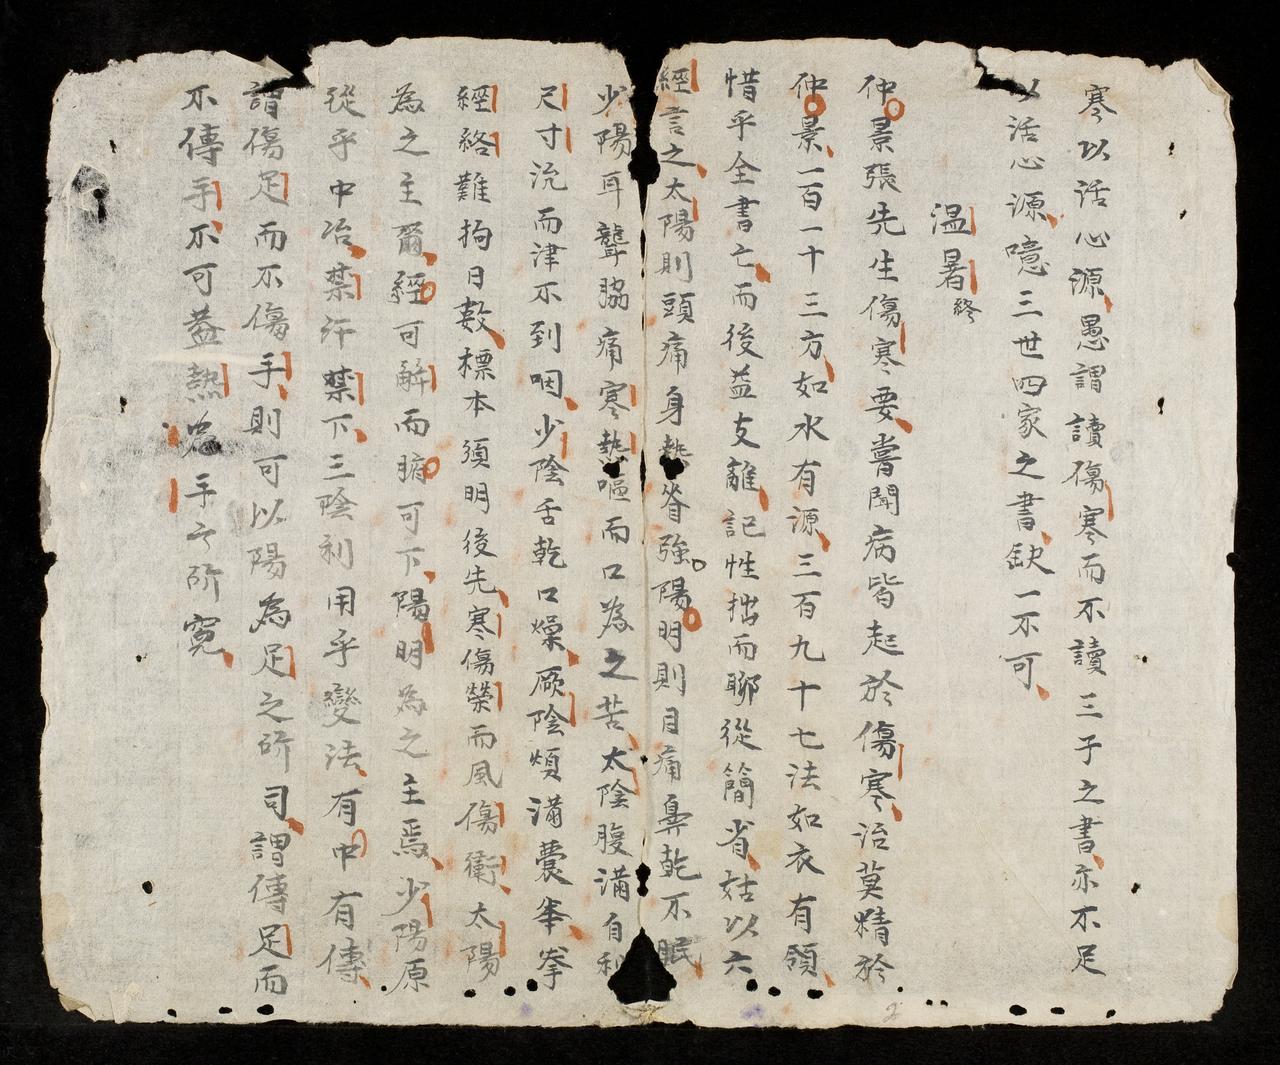 寒以活心源愚謂讀傷寒而不讀三子之書亦不足
以活心源噫三世四家之書缺一不可
温暑終
仲景張先生傷寒要嘗聞病皆起於傷寒治莫精於
仲景一百一十三方如水有源三百九十七法如衣有領
惜乎全書亡而後益支離記性拙而聊從簡省姑以六
經言之太陽則頭痛身熱脊強陽明則目痛鼻乾不眠
少陽耳聾脇痛寒熱嘔而口為之苦太陰腹满自利
尺寸沉而津不到咽少陰舌乾口燥厥陰煩满囊拳
經絡難拘日數標本須明後先寒傷榮而風傷衛太陽
為之主爾經可解而腑可下陽明為之主焉少陽原
從乎中治禁汗禁下三陰利用乎變法有中有傳
謂傷足而不傷手則可以陽為足之所司謂傳足而
不傳手不可蓋熱手之所寃